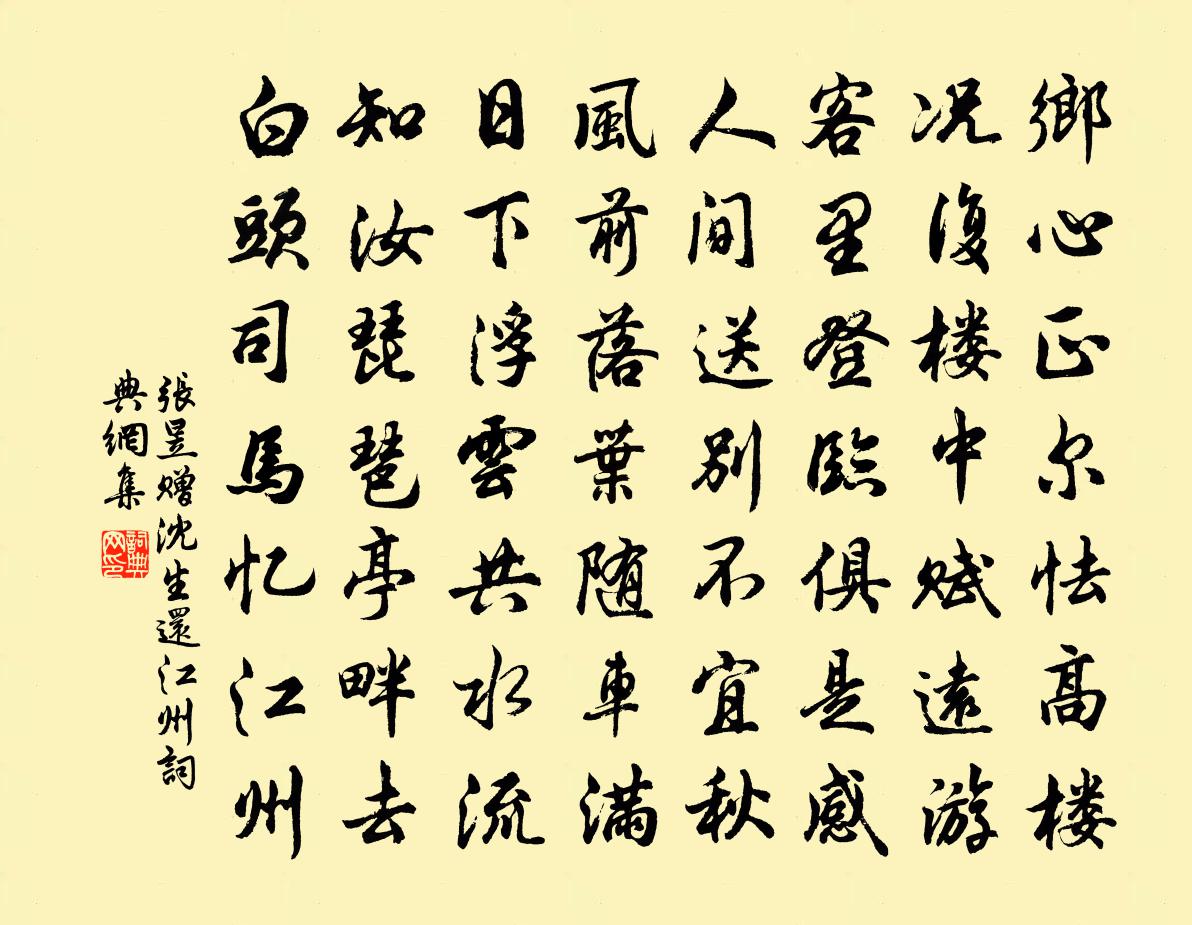 鄉心正尔怯高楼
况復楼中赋遠游
客里登臨俱是感
人间送别不宜秋
風前落葉随車满
日下浮雲共水流
知汝琵琶亭畔去
白頭司馬忆江州
張昱赠沈生還江州詞
典網集
詞典
网印